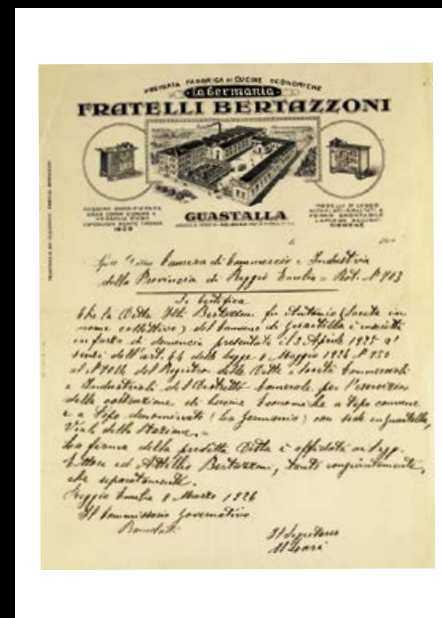 PREMIATA FABBRICA DI CUCINE ECONOMICHE
"La Germania"
FRATELLI BERTAZZONI
GUASTALLA
Camera di Commercio e Industria
della Provincia di Reggio Emilia = Prot. N 703
Si Certifica
Che la Ditta Flli Bertazzoni fu Antonio (Società in
nome collettivo) del Comune di Guastalla è inscritta
in forza di denuncia presentata il 3 Aprile 1925 a'
sensi dell'art. 64 della legge 8 Maggio 1924 N 750
al N del Registro delle Ditte e Società Commerciali
e Industriali del Distretto Camerale per l'esercizio
della costruzione di Cucine Economiche a tipo comune
e a tipo denominato (La Germania) con sede in Guastalla,
Viale della Stazione. =
La firma della predetta Ditta è affidata ai Sigg.
Ettore ed Attilio Bertazzoni, tanto congiuntamente,
che separatamente.
Reggio Emilia 8 Marzo 1926
Il Commissario Governativo
Il Segretario